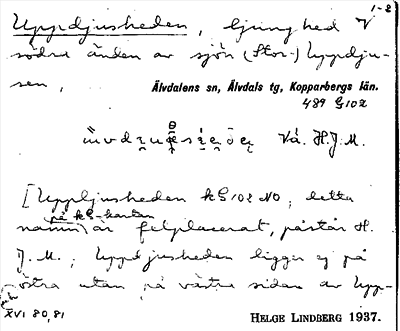 1-2
Uppdjusheden, ljunghed V
södra änden av sjön (Stor-) Uppdju-
sen,
Älvdalens sn, Älvdals tg, Kopparbergs län.
489 G102
Vå. H.J.M.
[Uppljusheden kG102 NO; detta
på kG-kartan
namn är felplacerat, påstår H.
J. M.; Uppdjusheden ligger ej på
östra utan på västra sidan av Upp-
XVI 80,81
HELGE LINDBERG 1937.